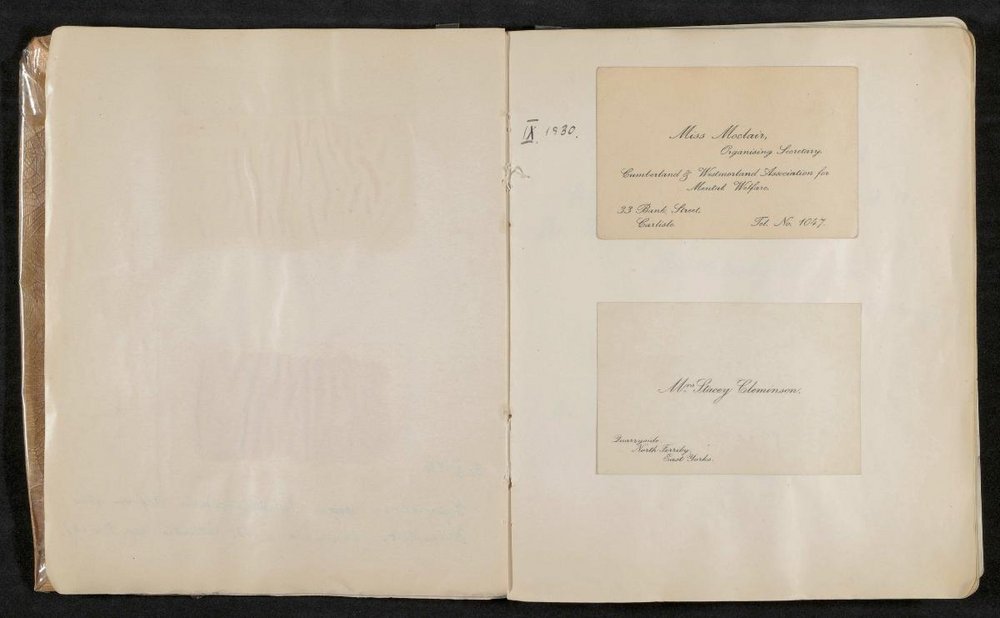 IX 1930.
Miss Moclair,
Organising Secretary.
Cumberland & Westmorland Association for
Mental Welfare.
33 Bank Street,
Carlisle.
Tel. No. 1047.
Mrs Stacey Cleminson.
Quarryside,
North Ferriby,
East Yorks.